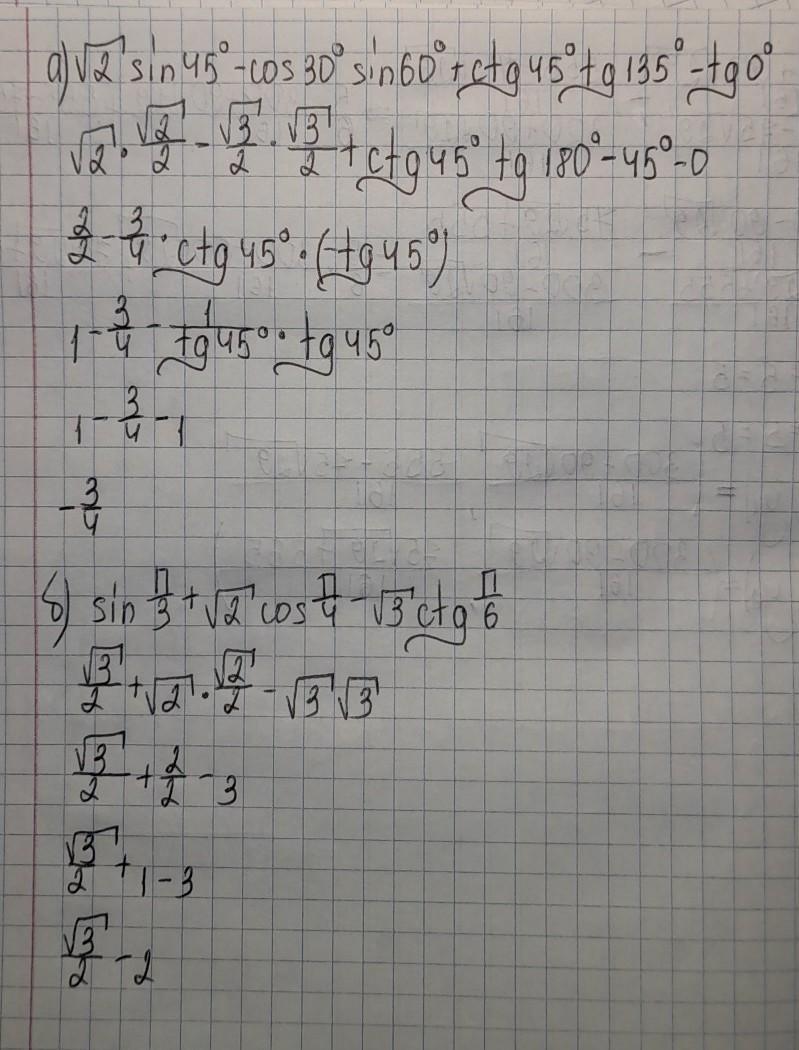 а) √2 sin 45° - cos 30° sin 60° + ctg 45° tg 135° - tg 0°
√2 · √2/2 - √3/2 · √3/2 + ctg 45° tg 180° - 45° - 0
2/2 - 3/4 · ctg 45° · (-tg 45°)
1 - 3/4 - 1/tg 45° · tg 45°
1 - 3/4 - 1
- 3/4
б) sin π/3 + √2 cos π/4 - √3 ctg π/6
√3/2 + √2 · √2/2 - √3 √3
√3/2 + 2/2 - 3
√3/2 + 1 - 3
√3/2 - 2